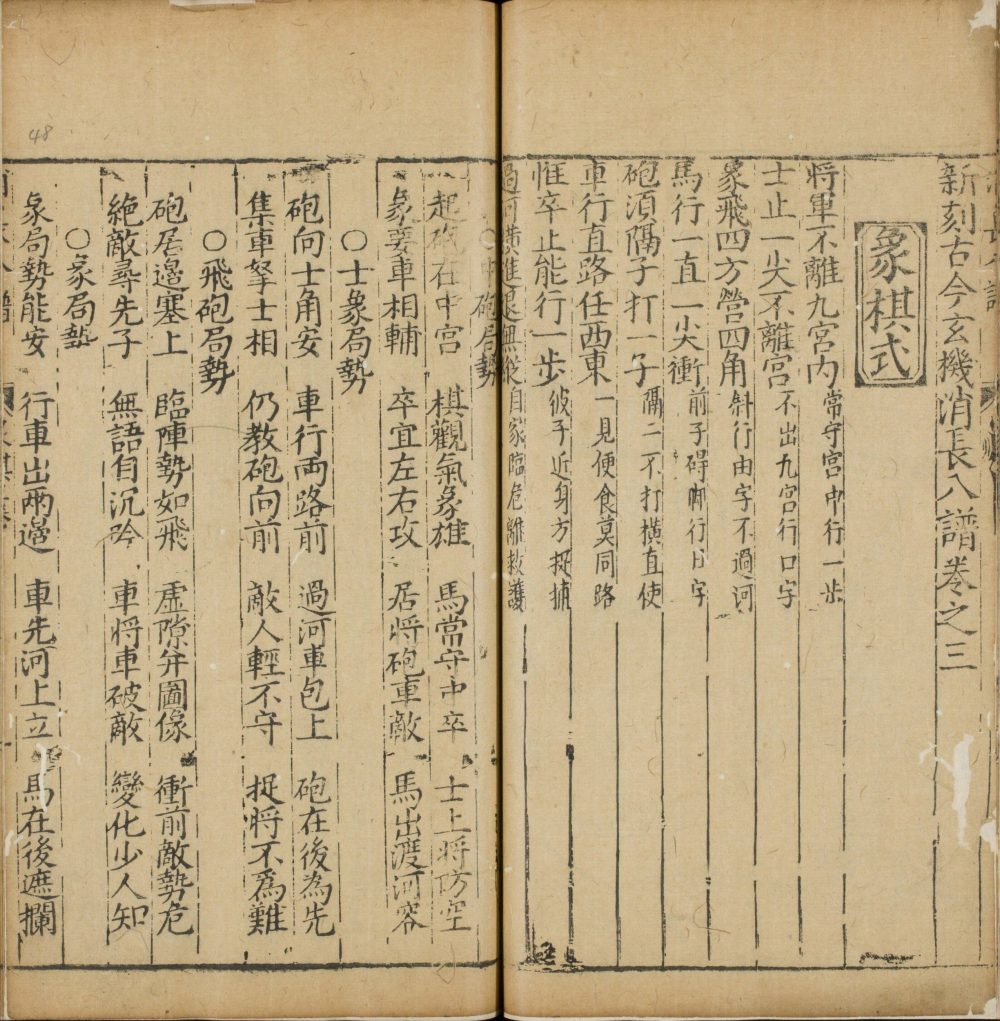 新刻古今玄機消長八譜卷之三
象棋式
將軍不離九宮內 常守宮中行一步
士止一尖不離宮 不出九宮行口字
象飛四方營四角 斜行由字不過河
馬行一直一尖衝 前子碍脚行日字
砲湏隔子打一子 隔二不打橫直使
車行直路任西東 一見便食莫同路
惟卒止能行一步 彼子近身方捉捕
過河橫進退無從 自家臨危難救護
○中砲局勢
起砲在中宮 棋觀氣象雄 馬常守中卒 士上將防空
象要車相輔 卒宜左右攻 居將砲車敵 馬出渡河容
○士象局勢
砲向士角安 車行両路前 過河車包上 砲在後為先
集車拏士相 仍教砲向前 敵人輕不守 捉將不爲難
○飛砲局勢
砲居邉塞上 臨陣勢如飛 虛隙弁圖像 衝前敵勢危
絶敵尋先子 無語自沉吟 車將車破敵 變化少人知
○象局勢
象局勢能安 行車出兩邉 車先河上立 馬在後遮攔
48